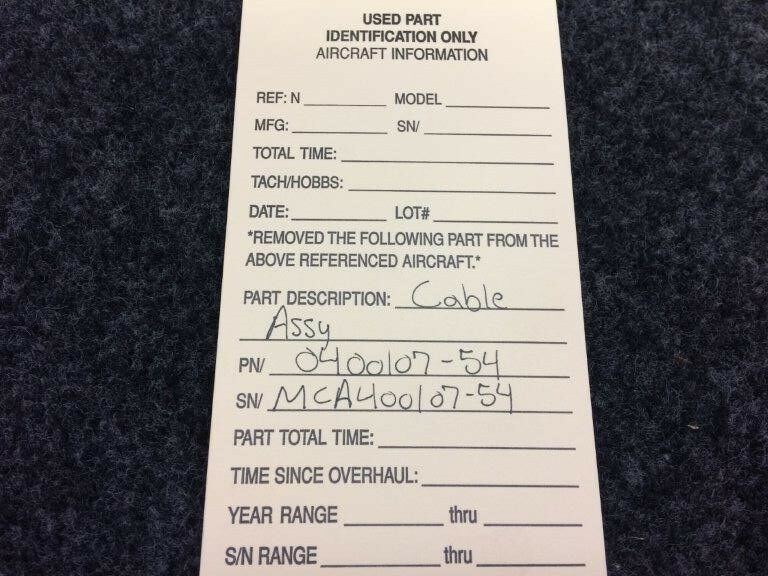 USED PART
IDENTIFICATION ONLY
AIRCRAFT INFORMATION
REF: N MODEL
MFG: SN/
TOTAL TIME:
TACH/HOBBS:
DATE: LOT#
*REMOVED THE FOLLOWING PART FROM THE
ABOVE REFERENCED AIRCRAFT.*
PART DESCRIPTION: Cable
Assy
PN/ 0400107-54
SN/ MCA400107-54
PART TOTAL TIME:
TIME SINCE OVERHAUL:
YEAR RANGE thru
S/N RANGE thru